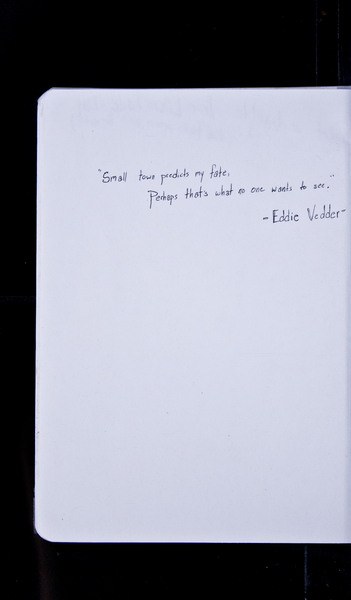 "Small town predicts my fate,
Perhaps that's what no one wants to see."
- Eddie Vedder -